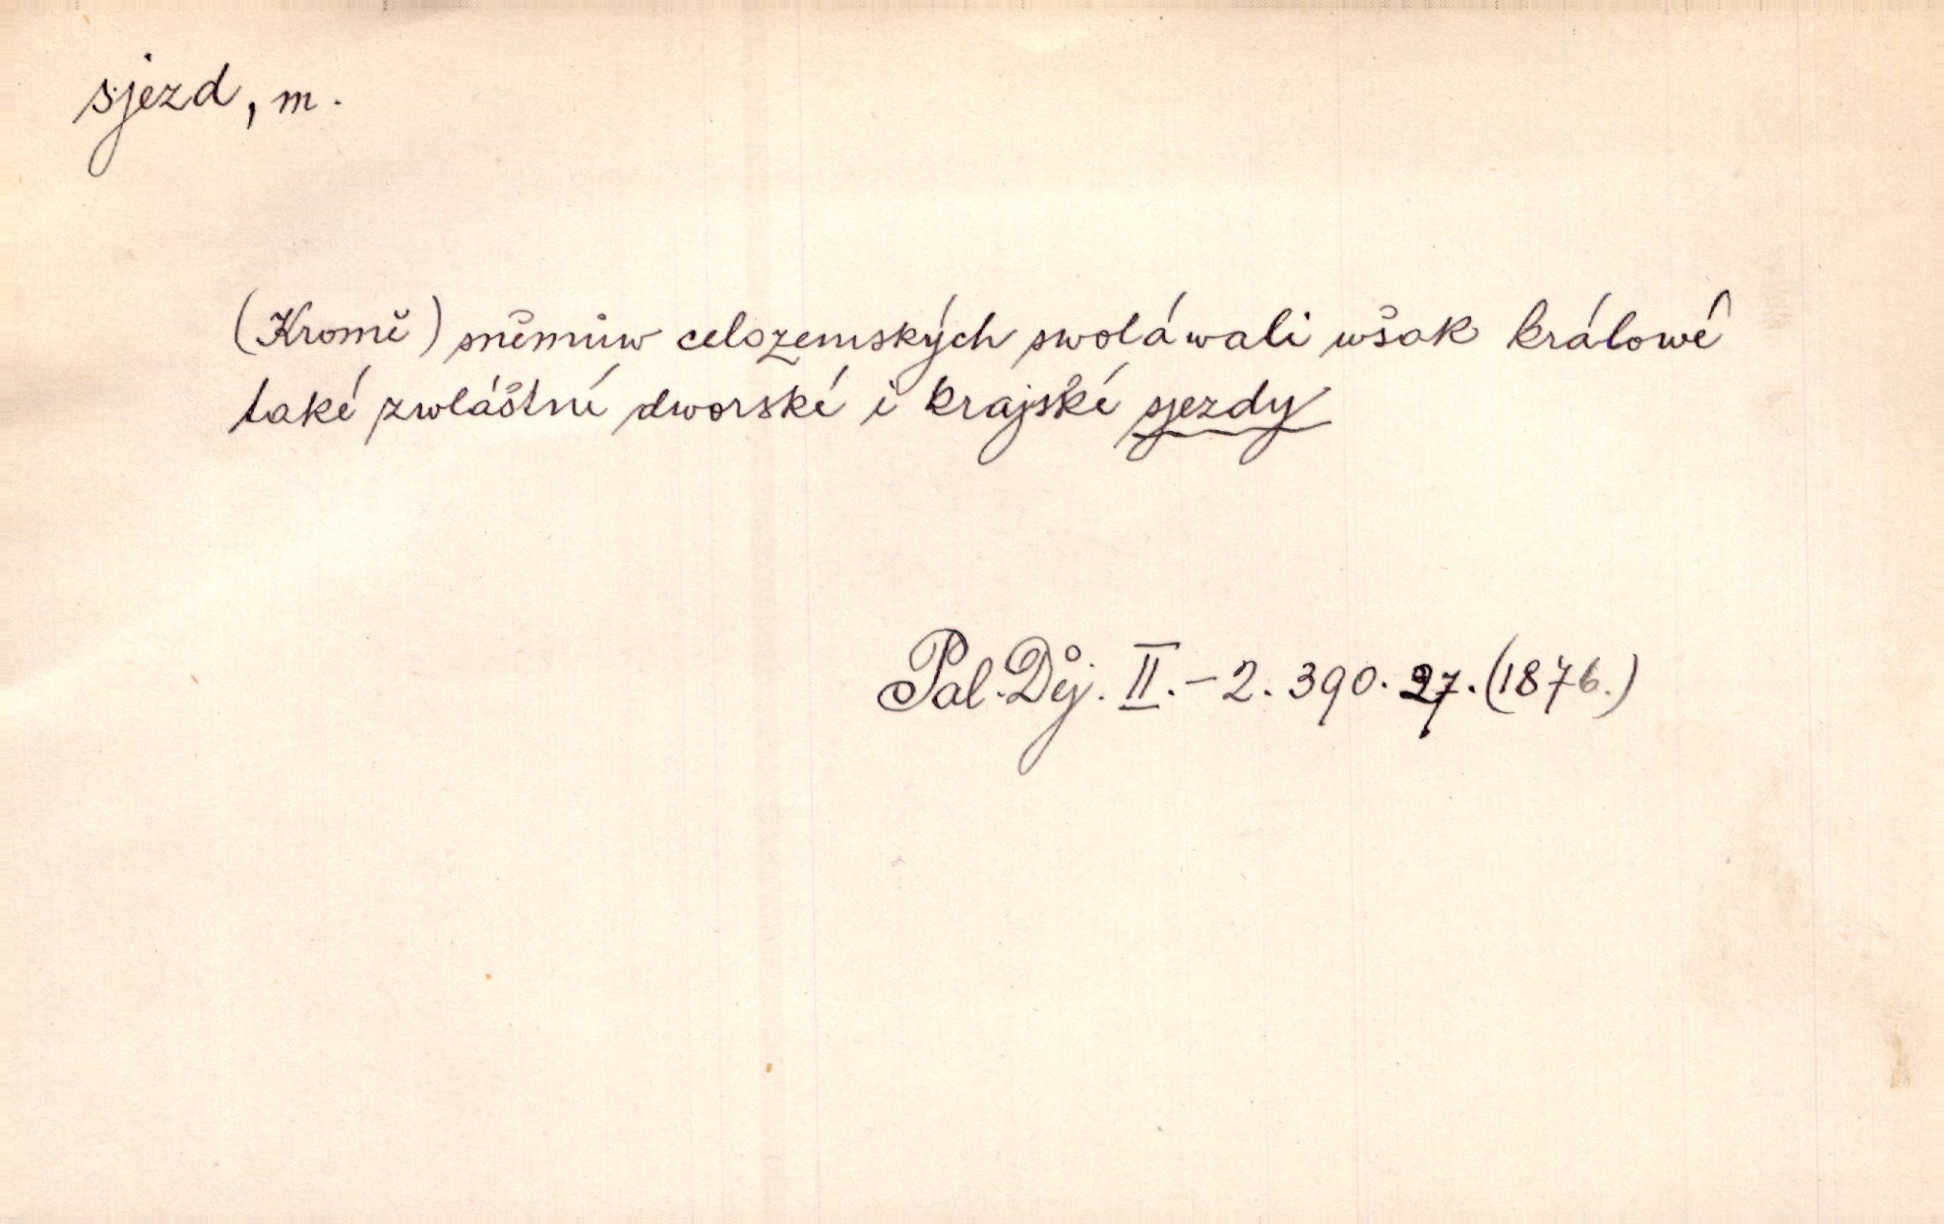 sjezd, m.
(Kromě) sněmůw celozemských swoláwali wšak králowé
také zwláštní dworské i krajské sjezdy
Pal. Děj. II. - 2. 390. 27. (1876.)